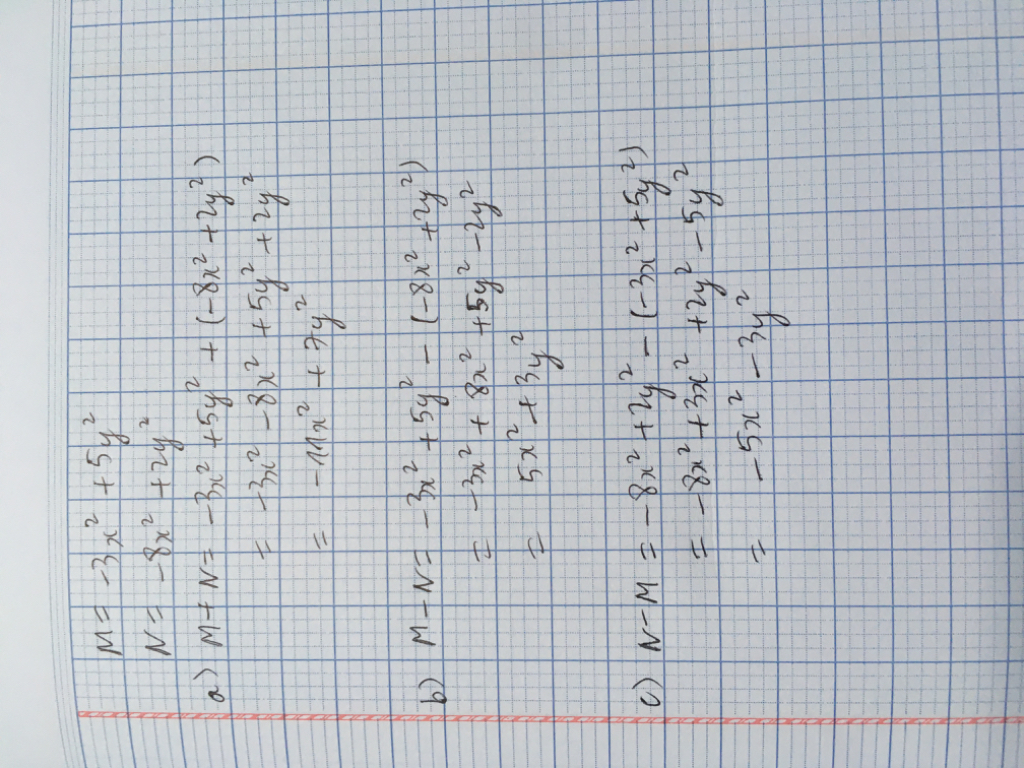 M = -3x² + 5y²
N = -8x² + 2y²
a) M + N = -3x² + 5y² + (-8x² + 2y²)
= -3x² - 8x² + 5y² + 2y²
= -11x² + 7y²
b) M - N = -3x² + 5y² - (-8x² + 2y²)
= -3x² + 8x² + 5y² - 2y²
= 5x² + 3y²
c) N - M = -8x² + 2y² - (-3x² + 5y²)
= -8x² + 3x² + 2y² - 5y²
= -5x² - 3y²